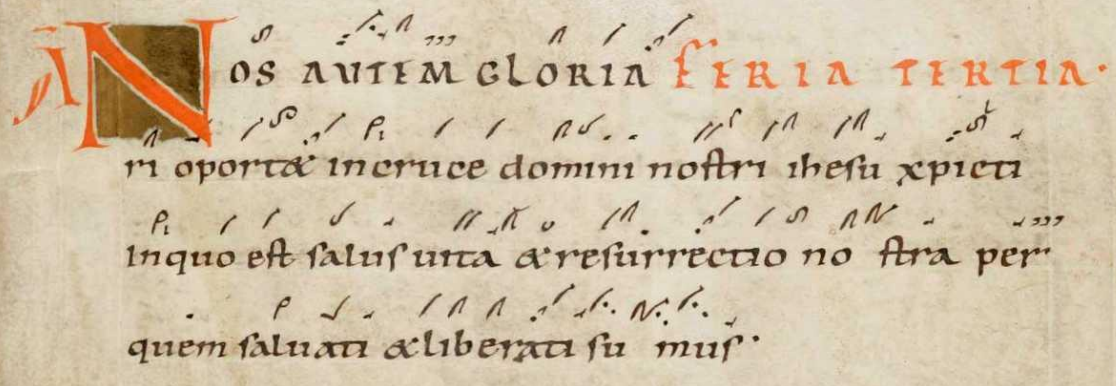 Ā NOS AUTEM GLORIA FERIA TERTIA·
ri oportæ incruce domini nostri ihesu xpicti
Inquo est salus uita & resurrectio no stra per·
quem saluati &liberati su mus·